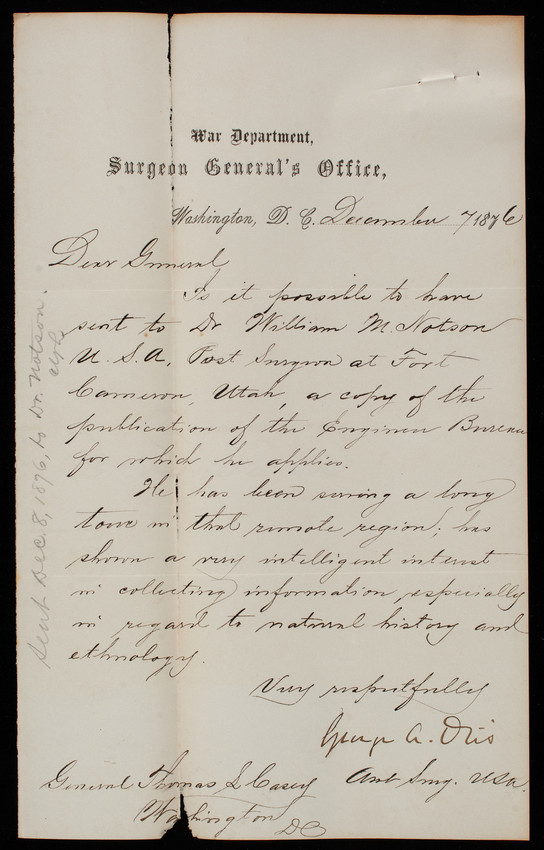 War Department,
Surgeon General's Office,
Washington, D. C. December 7 1876
Dear General
Is it possible to have
sent to Dr William M. Notson
U. S. A. Post Surgeon at Fort
Cameron, Utah, a copy of the
publication of the Engineer Bureau
for which he applies.
He has been serving a long
tour in that remote region; has
shown a very intelligent interest
in collecting information especially
in regard to natural history and
ethnology.
Very respectfully
George A. Otis
Asst Surg. USA.
General Thomas L Casey
Washington
DC
Sent Dec. 8, 1876, to Dr. Notson.